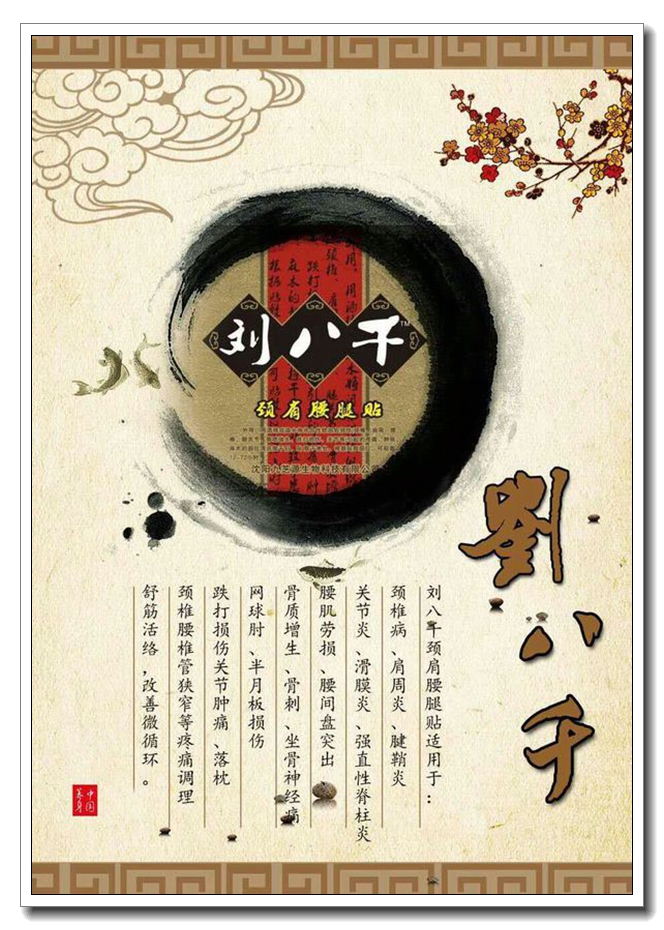 刘八千
TM
颈肩腰腿贴
沈阳九芝源生物科技有限公
劉八千
刘八千颈肩腰腿贴适用于：
颈椎病、肩周炎、腱鞘炎
关节炎、滑膜炎、强直性脊柱炎
腰肌劳损、腰间盘突出
骨质增生、骨刺、坐骨神经痛
网球肘、半月板损伤
跌打损伤关节肿痛、落枕
颈椎腰椎管狭窄等疼痛调理
舒筋活络，改善微循环。
中国
养身